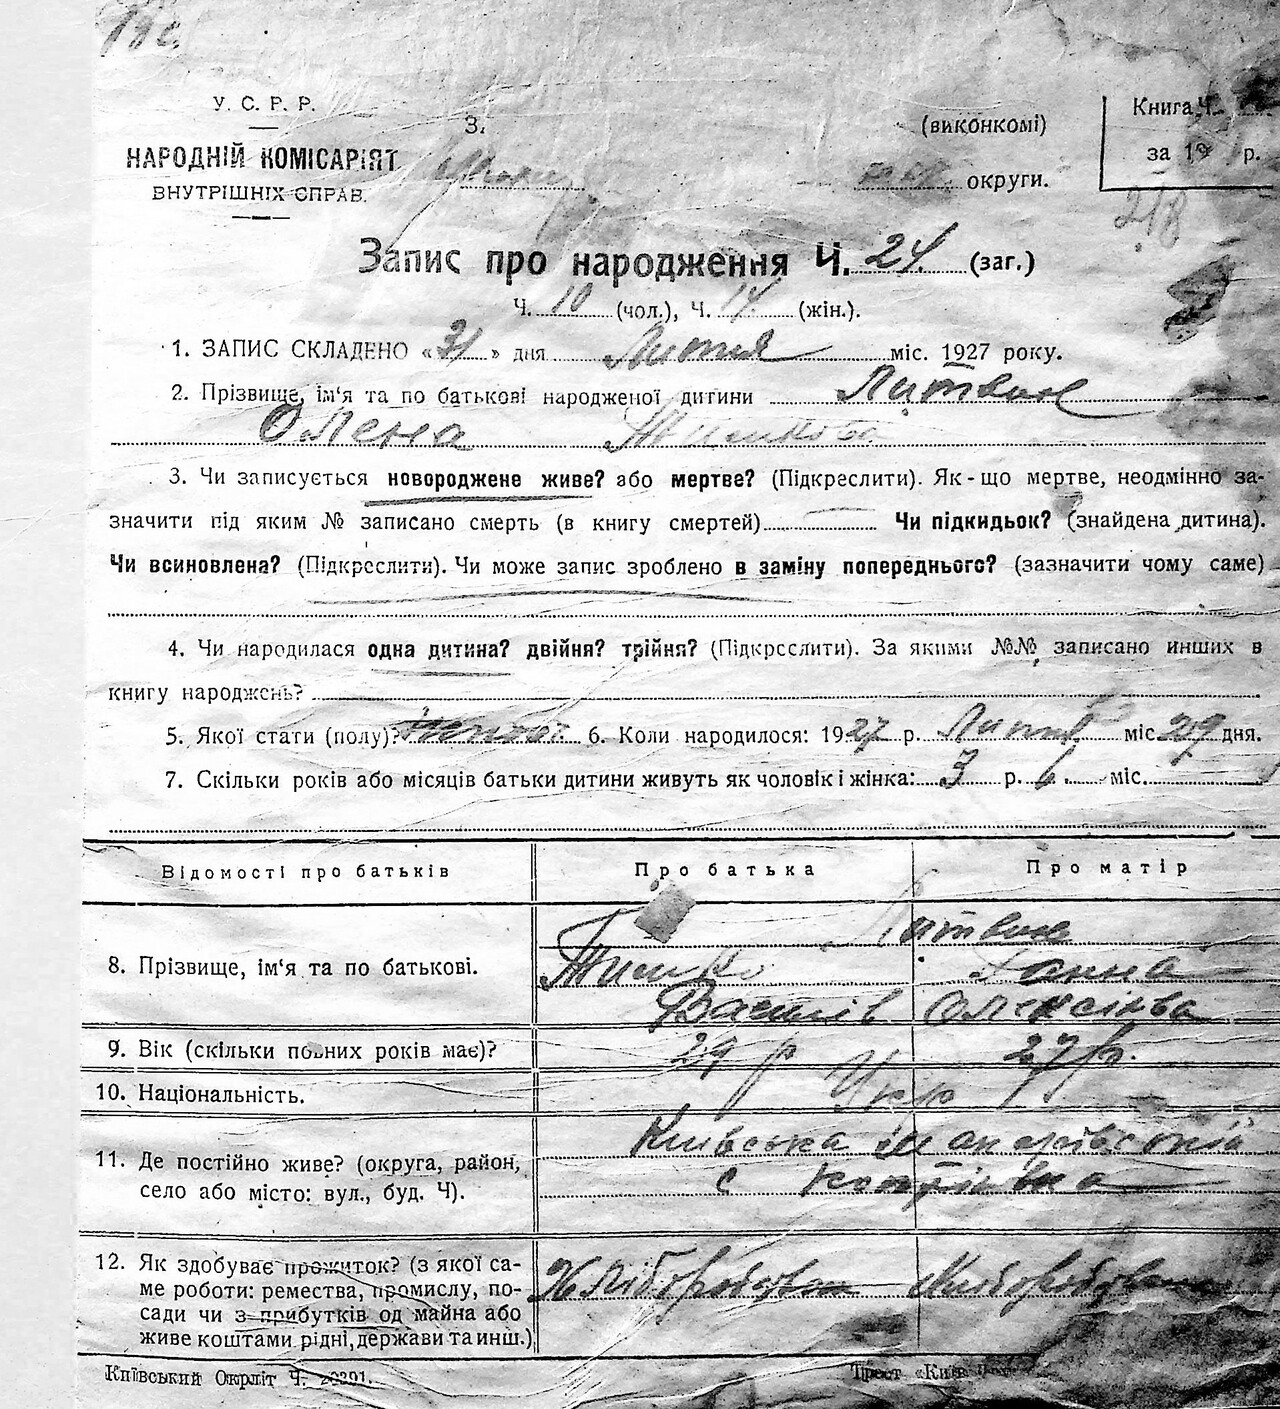 У. С. Р. Р.
НАРОДНІЙ КОМІСАРІЯТ
ВНУТРІШНІХ СПРАВ.
З.
(виконкомі)
округи.
Книга Ч.
за 19 р.
218
Запис про народження Ч. 24. (заг.)
Ч. 10 (чол.), Ч. 14 (жін.).
1. ЗАПИС СКЛАДЕНО «31» дня Лютня міс. 1927 року.
2. Прізвище, ім'я та по батькові народженої дитини Литвин
Олена Тимкова
3. Чи записується новороджене живе? або мертве? (Підкреслити). Як-що мертве, неодмінно за-
значити під яким № записано смерть (в книгу смертей) Чи підкидьок? (знайдена дитина).
Чи всиновлена? (Підкреслити). Чи може запис зроблено в заміну попереднього? (зазначити чому саме)
4. Чи народилася одна дитина? двійня? трійня? (Підкреслити). За якими №№ записано инших в
книгу народжень?
5. Якої стати (полу)? 6. Коли народилося: 1927 р. міс. 29 дня.
7. Скільки років або місяців батьки дитини живуть як чоловік і жінка: 3 р. міс.
Відомості про батьків Про батька Про матір
Литвин
8. Прізвище, ім'я та по батькові. Тимко Ганна
Василів Олексієва
9. Вік (скільки повних років має)? 29 р 27 р.
10. Національність. Укр
Київська
11. Де постійно живе? (округа, район,
село або місто: вул., буд. Ч). с
12. Як здобуває прожиток? (з якої са-
ме роботи: ремества, промислу, по- Хліборобство Хліборобство
сади чи з прибутків од майна або
живе коштами рідні, держави та инш.)
Київський Окрліт Ч. 20391. Трест «Київ